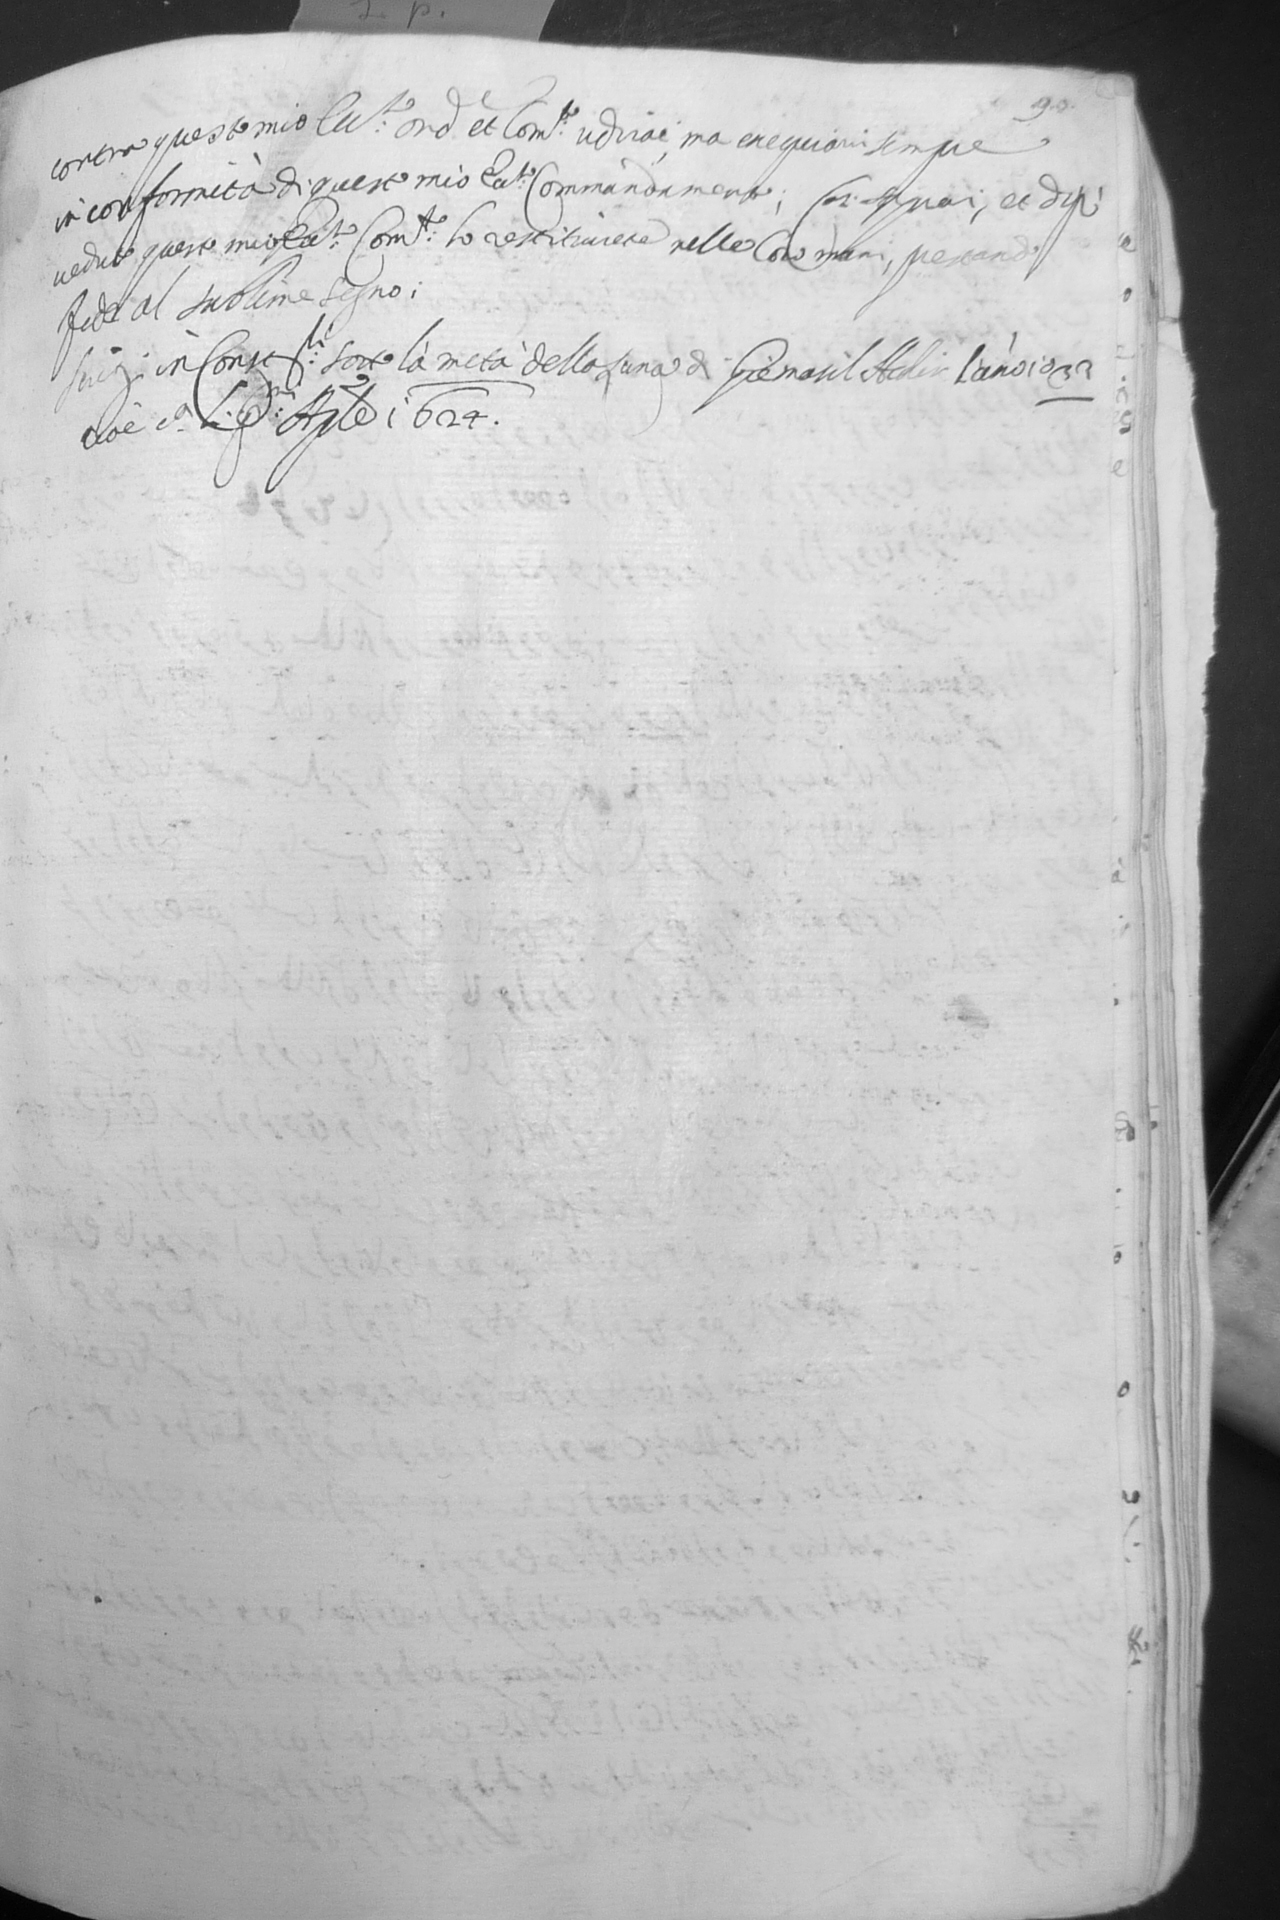 90.
contra questo mio Ecc.^to ord.^e et Com.^to udirai, ma exequirai sempre
in conformità di questo mio Ecc.^to Commandamento; et dipoi
veduto questo mio Ecc.^to Com.^to lo restituirete nelle loro mani, prestando
fede al sublime segno;
in Const.^li sotto la metà della luna di Giemasil Achir l'anno 1033
cioè c.^a li p.^mi Aple 1624.